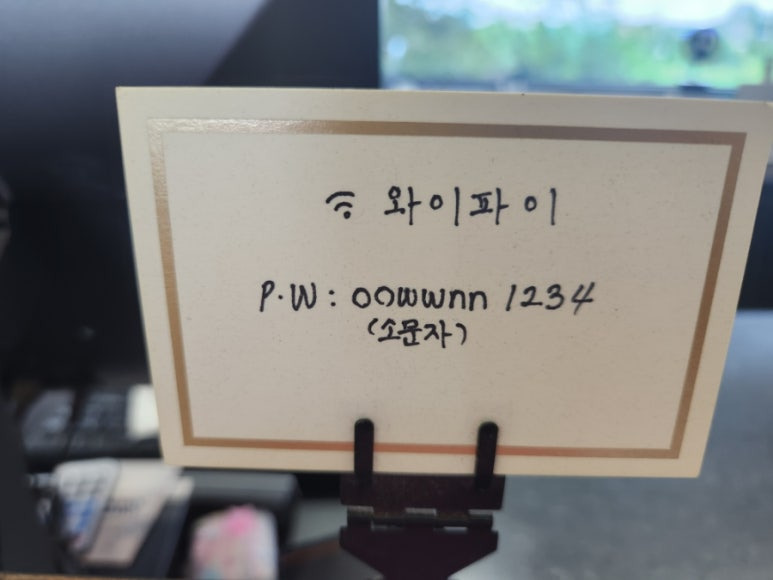 와이파이
P.W: oowwnn 1234
(소문자)